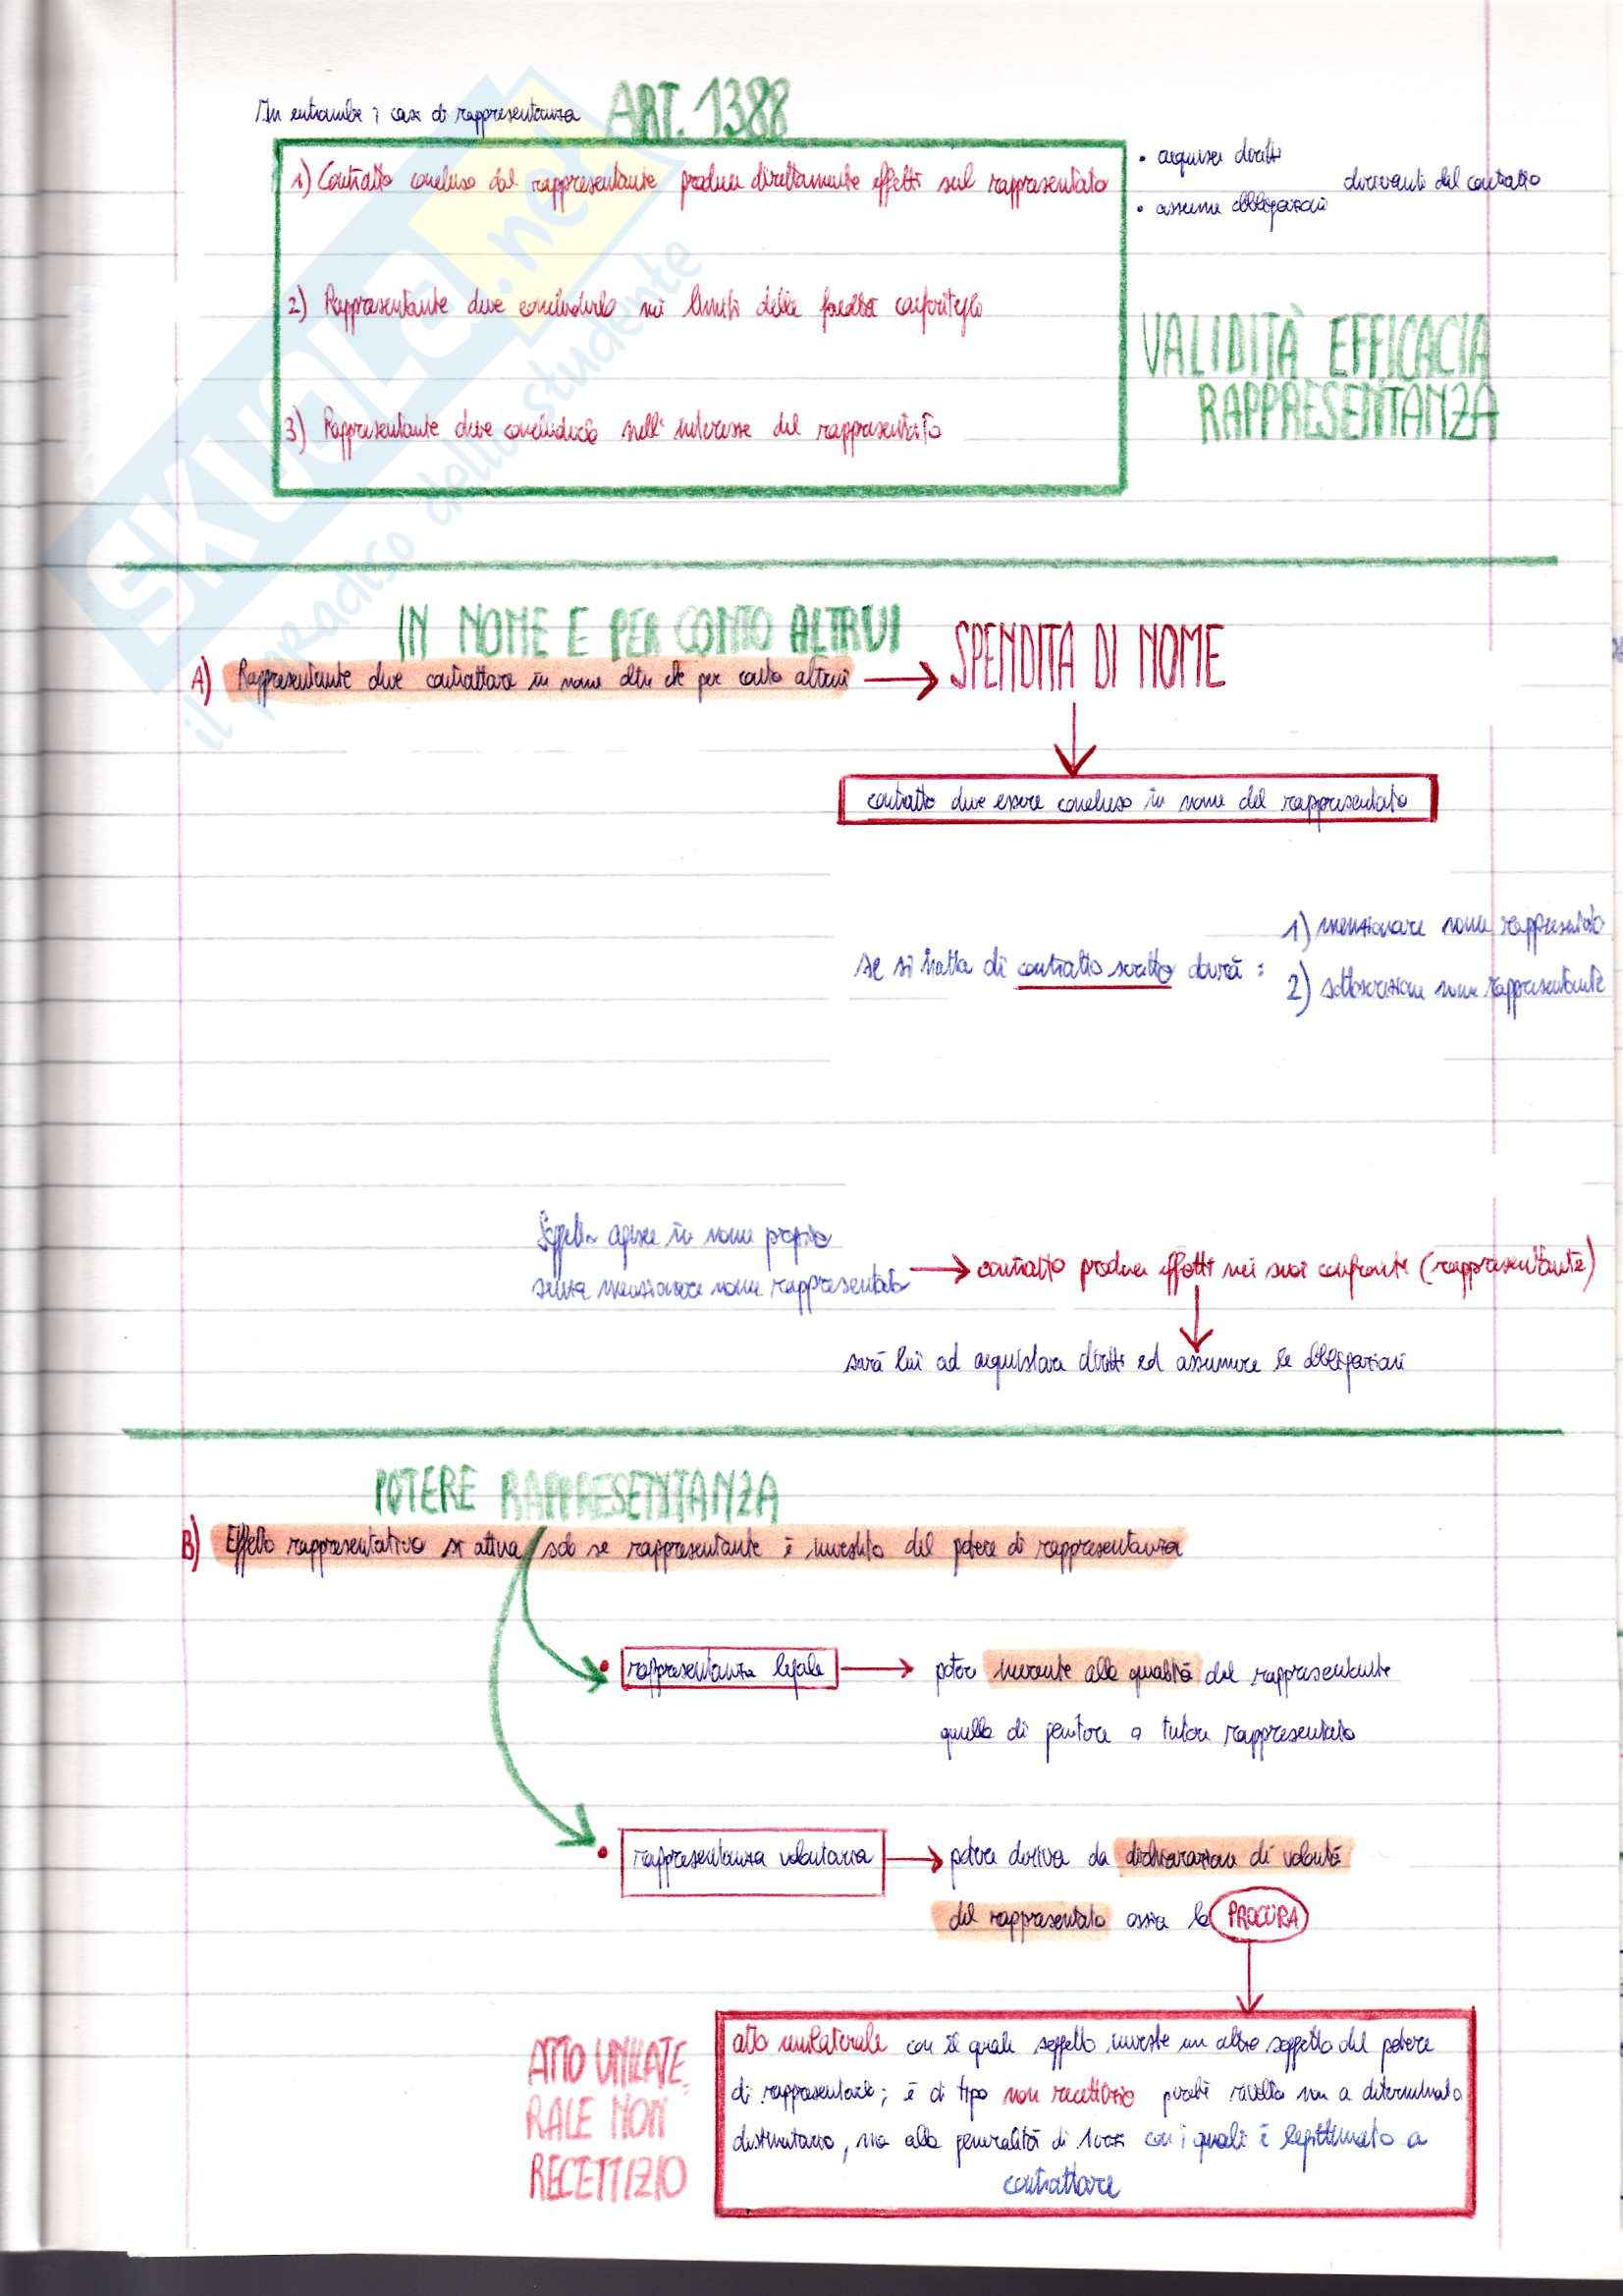 In entrambe i casi di rappresentanza ART. 1388
1) Contratto concluso dal rappresentante produce direttamente effetti sul rappresentato
• acquisisce diritti
• assume obbligazioni
derivanti dal contratto
2) Rappresentante deve concluderlo nei limiti delle facoltà conferitegli
3) Rappresentante deve concluderlo nell'interesse del rappresentato
VALIDITÀ EFFICACIA
RAPPRESENTANZA
SKUOLA.net
il paradiso dello studente
IN NOME E PER CONTO ALTRUI
A) Rappresentante deve contrattare in nome oltre che per conto altrui
SPENDITA DI NOME
contratto deve essere concluso in nome del rappresentato
se si tratta di contratto scritto dovrà :
1) menzionare nome rappresentato
2) sottoscrizione nome rappresentante
Soggetto agisce in nome proprio
senza menzionare nome rappresentato
contratto produce effetti nei suoi confronte (rappresentante)
sarà lui ad acquistare diritti ed assumere le obbligazioni
POTERE RAPPRESENTANZA
B) Effetto rappresentativo si attiva solo se rappresentante è investito del potere di rappresentanza
• rappresentanza legale
potere inerente alla qualità del rappresentante
quella di genitore o tutore rappresentato
• rappresentanza volontaria
potere deriva da dichiarazione di volontà
del rappresentato ossia la PROCURA
ATTO UNILATE-
RALE NON
RECETTIZIO
atto unilaterale con il quale soggetto investe un altro soggetto del potere
di rappresentarlo; è di tipo non recettizio perché rivolto non a determinato
destinatario, ma alla generalità di terzi con i quali è legittimato a
contrattare